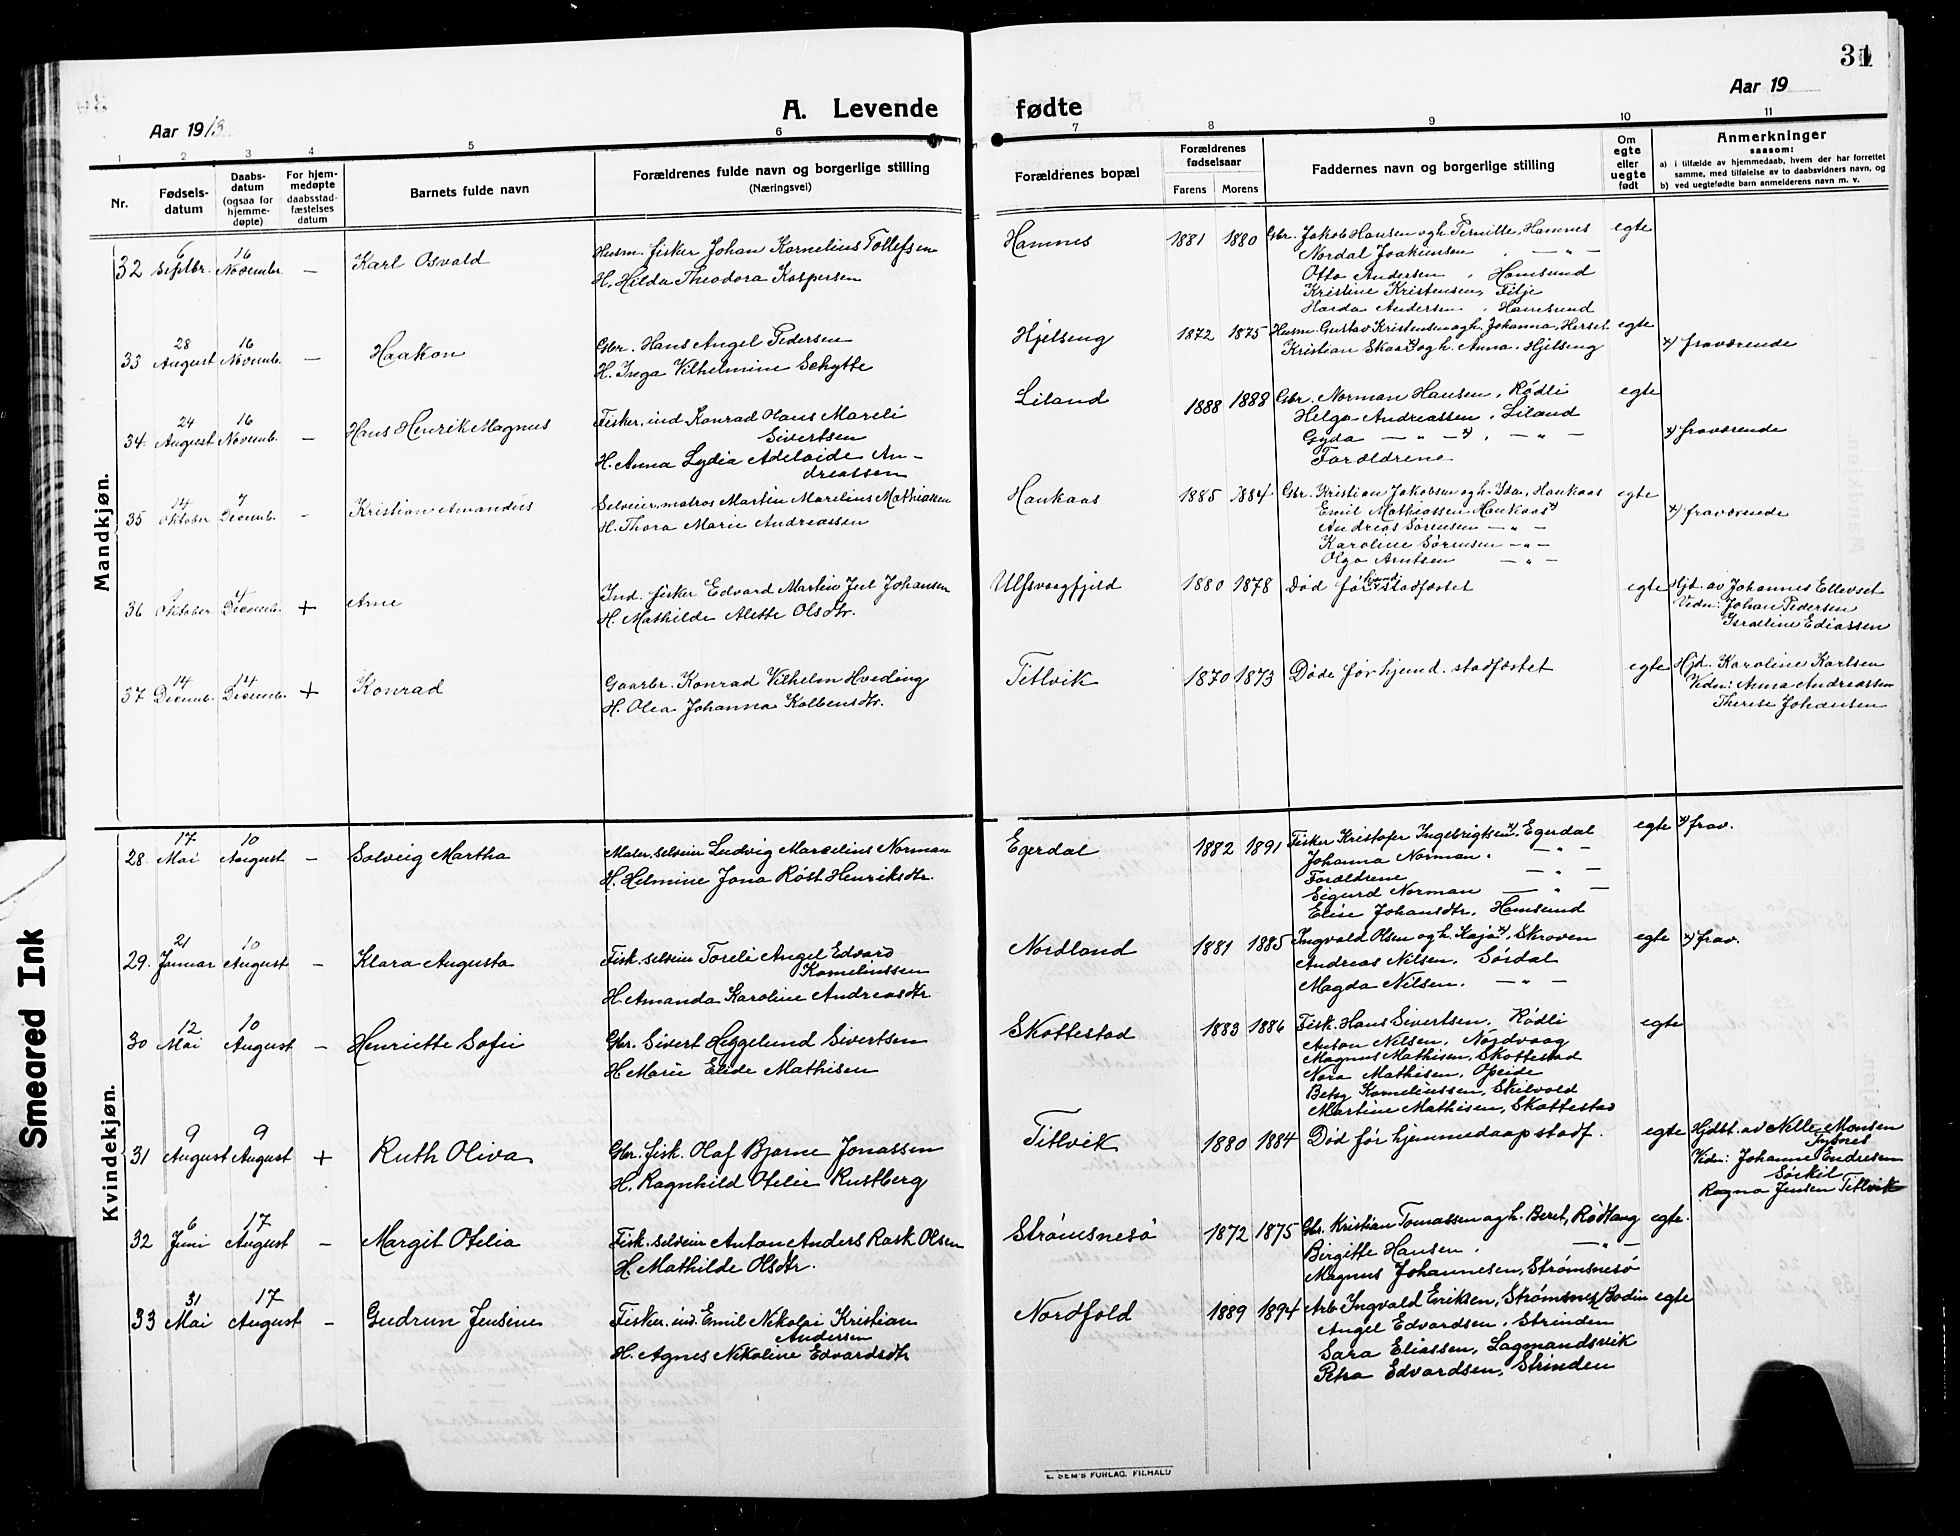 31
Aar 1913
A. Levende
fødte
Aar 19
1 2 3 4 5 6 7 8 9 10 11
Nr.
Fødsels-
datum
Daabs-
datum
(ogsaa for
hjemme-
døpte)
For hjem-
medøpte
daabsstad-
fæstelses
datum
Barnets fulde navn
Forældrenes fulde navn og borgerlige stilling
(Næringsvei)
Forældrenes bopæl
Forældrenes
fødselsaar
Farens Morens
Faddernes navn og borgerlige stilling
Om
egte
eller
uegte
født
Anmerkninger
saasom:
a) i tilfælde av hjemmedaab, hvem der har forrettet
samme, med tilføielse av to daabsvidners navn, og
b) ved uegtefødte barn anmelderens navn m. v.
Mandkjøn.
32 6 Septbr. 16 Novembr — Karl Osvald
Husm. fisker Johan Kornelius Tollefsen
H. Hilda Theodora Kaspersen
Hamnes 1881 1880
Gbr. Jakob Hansen og h. Pernille, Hamnes egte
Nordal Joakimsen, — " —
Otto Andersen, Hamsund
Kristine Kristensen, Filje
Harda Andersen, Hamsund
33 28 August 16 Novemb. — Haakon
Gbr. Hans Angel Pedersen
H. Inga Vilhelmine Schytte
Hjelseng 1872 1875
Husm. Gustav Kristensen og h. Johanna, Herset egte
Kristian Skaar x) og h. Anna, Hjelseng
x) fraværende
34. 24 August 16 Novemb. — Hans Henrik Magnus
Fisker, ind Konrad Hans Mareli
Sivertsen
H. Anna Lydia Adelaide An-
dreassen
Liland 1888 1888
Gbr. Norman Hansen, Rødli egte
Helga Andreassen, Liland
Gyda — " — x), — " —
Forældrene
x) fraværende
35 14 Oktober 7 Decemb. - Kristian Amandus
Selveier, matros Martin Marelius Mathiassen
H. Thora Marie Andreassen
Haukaas 1885 1884
Gbr. Kristian Jakobsen og h. Ida, Haukaas egte
Emil Mathiassen Haukaas x)
Andreas Sørensen — " —
Karoline Sørensen — " —
Olga Arntsen — " —
x) fraværende
36 Oktober Decemb. + Arne
Ind. fisker Edvard Martin Juul Johansen
H. Mathilde Alette Olsdtr.
Ulfsvaagfjeld 1880 1878
Død før hjemd. stadfæstet egte
Hjd. av Johannes Ellevset
Vidn: Johan Pedersen
Israeline Ediassen
37 14 Decemb. 14 Decemb. + Konrad
Gaarbr. Konrad Vilhelm Hveding
H. Olea Johanna Kolbensdtr.
Titlvik 1870 1873
Døde før hjemd. stadfæstet egte
Hjd. Karoline Karlsen
Vidn: Anna Andreassen
Therese Johansen
Kvindekjøn.
28. 17 Mai 10 August — Solveig Martha
Maler, selveier Ludvig Marcelius Norman
H. Helmine Jona Røst Henriksdtr.
Egerdal 1882 1891
Fisker Kristofer Ingebrigtsen x), Egerdal egte x) frav.
Johanna Norman, — " —
Forældrene — " —
Sigurd Norman — " —
Elise Johansdtr, Hamsund
29. 21 Januar 10 August — Klara Augusta
Fisk. selveier Toreli Angel Edvard
Korneliussen
H. Amanda Karoline Andreasdtr
Nordland 1881 1885
Ingvald Olsen og h. Kaja x), Skroven egte x) frav.
Andreas Nilsen, Sørdal
Magda Nilsen, — " —
30 12 Mai 10 August — Henriette Sofie
Gbr. Sivert Heggelund Sivertsen
H Marie Elide Mathisen
Skottestad 1883 1886
Fisk. Hans Sivertsen, Rødli egte
Anton Nilsen, Nordvaag
Magnus Mathisen, Skottestad
Nora Mathisen, Opeide
Betzy Korneliussen, Skilvold
Martine Mathisen, Skottestad
31 9 August 9 August + Ruth Oliva
Gbr. fisk. Olaf Bjarne Jonassen
H. Ragnhild Otelie Rustberg
Titlvik 1880 1884
Død før hjemmedaap stadf. egte
Hjdst. av Nelle Monsen
Vidn: Johanne Endresen
Sørkil
Ragna Jensen Titlvik
32 6 Juni 17 August — Margit Otelia
Fisk. selveier Anton Anders Rask Olsen
H. Mathilde Olsdtr.
Strømsnesø 1872 1875
Gbr. Kristian Tomassen og h. Beret, Rødtang egte.
Birgitte Hansen, — " —
Magnus Johannesen, Strømsnesø
33 31 Mai 17 August — Gudrun Jensine
Fisker. ind. Emil Nikolai Kristian
Andersen
H. Agnes Nikoline Edvardsdtr
Nordfold 1889 1894
Arb. Ingvald Eriksen, Strømsnes, Bodin egte
Angel Edvardsen, Strinden
Sara Eliassen, Lagmandsvik
Petra Edvardsen, Strinden
E. SEM'S FORLAG, F.HALD
Smeared Ink